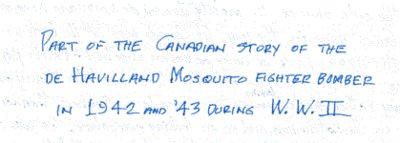 PART OF THE CANADIAN STORY OF THE
DE HAVILLAND MOSQUITO FIGHTER BOMBER
IN 1942 AND '43 DURING W.W.II